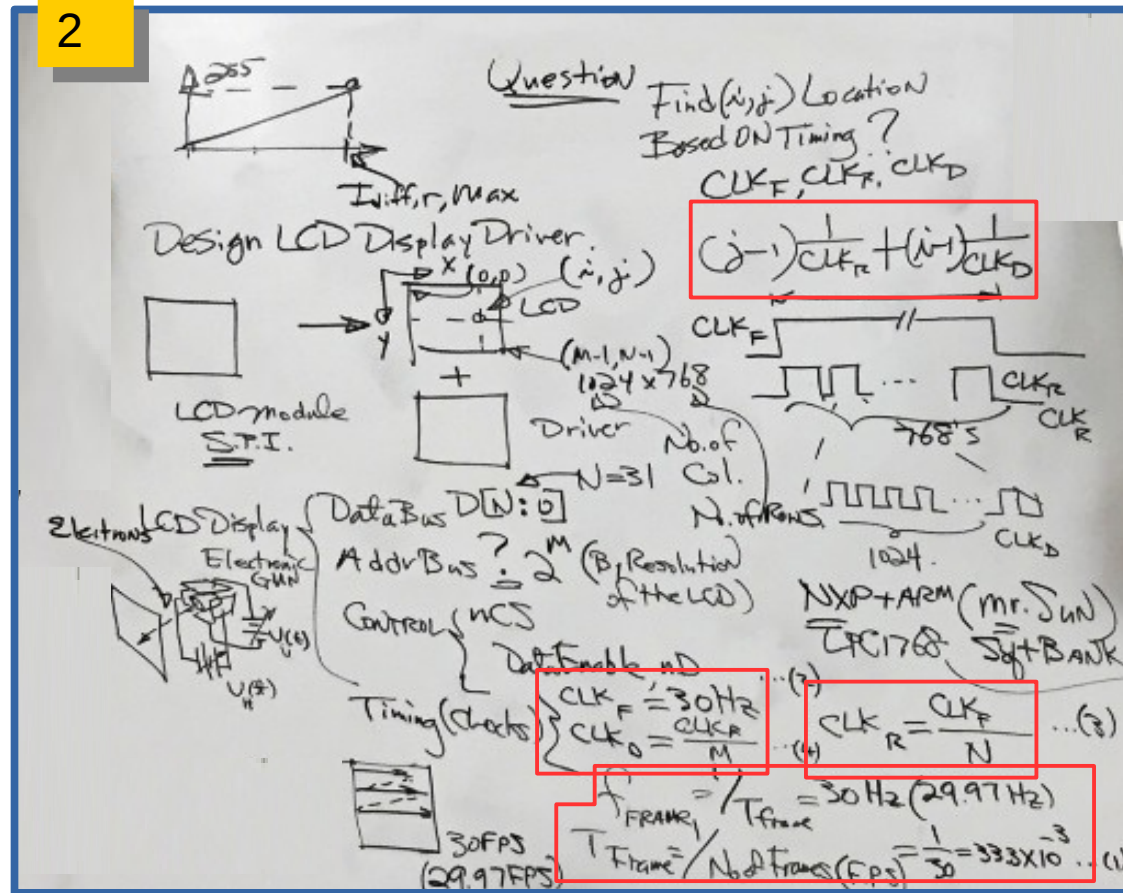 2
255
Question
Find (i,j) Location
Based ON Timing?
CLK_F, CLK_R, CLK_D
Idiff,r,max
Design LCD Display Driver.
(j-1) 1/CLK_R + (i-1) 1/CLK_D
X (0,0) (i,j)
LCD
y
CLK_F
(M-1,N-1)
1024 x 768
CLK_R
CLK_R
768's
+
LCD module
S.P.I.
Driver
No. of
Col.
No. of Rows
N=31
1024.
CLK_D
Electrons
LCD Display
Electronic
GUN
U(t)
U_H(t)
Data Bus D[N:0]
Addr Bus ? 2^M (By Resolution
of the LCD)
CONTROL { nCS
Data Enable, nD
NXP+ARM (Mr. SuN)
LPC1768 Sft BANK
Timing (Clocks) { CLK_F = 30Hz ...(2)
CLK_D = CLK_R/M ...(4)
CLK_R = CLK_F/N ...(3)
f_FRAME = 1/T_frame = 30 Hz (29.97 Hz)
T_Frame = 1/No. of Frames (FPS) = 1/30 = 33.3 x 10^-3 ...(1)
30FPS
(29.97FPS)